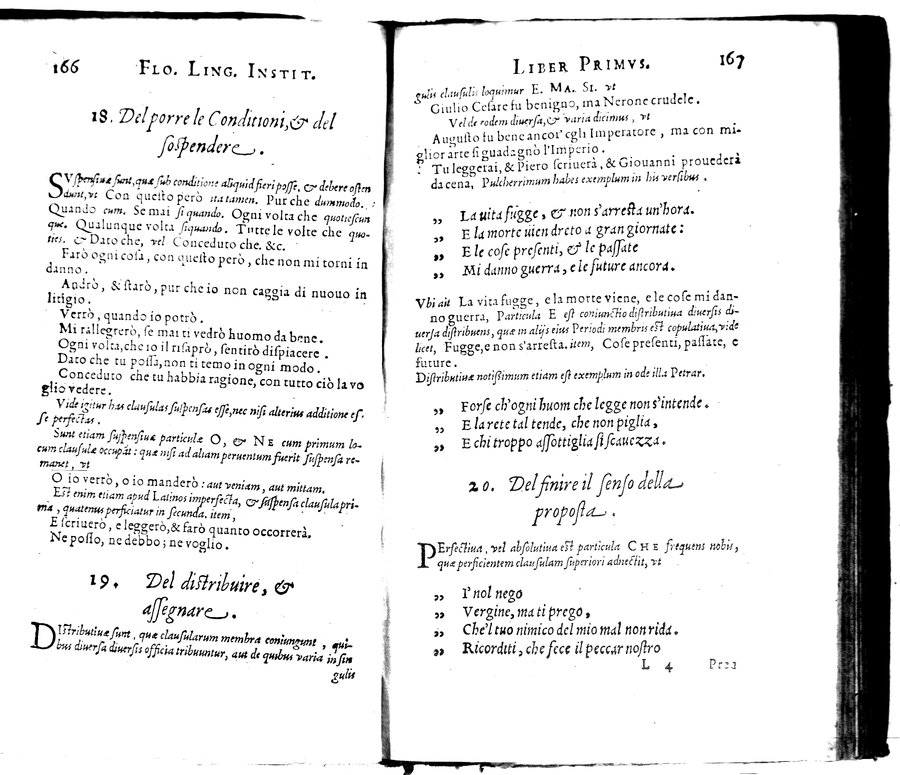 166 FLO. LING. INSTIT.
18. Del porre le Conditioni, & del
sospendere.
SVspensiuæ sunt, quæ sub conditione aliquid fieri posse, & debere osten
dunt, vt Con questo però ita tamen. Pur che dummodo.
Quando cum. Se mai si quando. Ogni volta che quotiescun
que. Qualunque volta siquando. Tutte le volte che quo-
ties. & Dato che, vel Conceduto che. &c.
Farò ogni cosa, con questo però, che non mi torni in
danno.
Andrò, & starò, pur che io non caggia di nuouo in
litigio.
Verrò, quando io potrò.
Mi rallegrerò, se mai ti vedrò huomo da bene.
Ogni volta, che io il risaprò, sentirò dispiacere.
Dato che tu possa, non ti temo in ogni modo.
Conceduto che tu habbia ragione, con tutto ciò la vo
glio vedere.
Vide igitur has clausulas suspensas esse, nec nisi alterius additione es-
se perfectas.
Sunt etiam suspensiuæ particulæ O, & NE cum primum lo-
cum clausulæ occupāt: quæ nisi ad aliam peruentum fuerit suspensa re-
manet, vt
O io verrò, o io manderò: aut veniam, aut mittam.
Est enim etiam apud Latinos imperfecta, & suspensa clausula pri-
ma, quatenus perficiatur in secunda. item,
E scriuerò, e leggerò, & farò quanto occorrerà.
Ne posso, ne debbo; ne voglio.
19. Del distribuire, &
assegnare.
DIstributiuæ sunt, quæ clausularum membra coniungunt, qui-
bus diuersa diuersis officia tribuuntur, aut de quibus varia in sin
gulis
LIBER PRIMVS. 167
gulis clausulis loquimur E. MA. SI. vt
Giulio Cesare fu benigno, ma Nerone crudele.
Vel de eodem diuersa, & varia dicimus, vt
Augusto fu bene ancor' egli Imperatore, ma con mi-
glior arte si guadagnò l'Imperio.
Tu leggerai, & Piero scriuerà, & Giouanni prouederà
da cena, Pulcherrimum habes exemplum in his versibus.
„ La uita fugge, & non s'arresta un'hora.
„ E la morte uien dreto a gran giornate:
„ E le cose presenti, & le passate
„ Mi danno guerra, e le future ancora.
Vbi ait La vita fugge, e la morte viene, e le cose mi dan-
no guerra, Particula E est coniunctio distributiua diuersis di-
uersa distribuens, quæ in alijs eius Periodi membris est copulatiua, vide
licet, Fugge, e non s'arresta. item, Cose presenti, passate, e
future.
Distributiuæ notissimum etiam est exemplum in ode illa Petrar.
„ Forse ch'ogni huom che legge non s'intende.
„ E la rete tal tende, che non piglia,
„ E chi troppo assottiglia si scauezza.
20. Del finire il senso della
proposta.
PErfectiua, vel absolutiua est particula CHE frequens nobis,
quæ perficientem clausulam superiori adnectit, vt
„ I' nol nego
„ Vergine, ma ti prego,
„ Che'l tuo nimico del mio mal non rida.
„ Ricorditi, che fece il peccar nostro
L 4